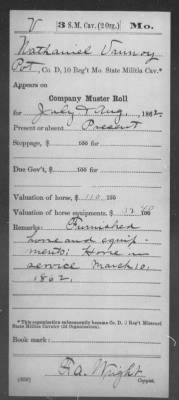 V 3 S.M. Cav. (2 Org.) Mo.
Nathaniel Vannoy
Pvt., Co. D, 10 Reg't Mo. State Militia Cav.*
Appears on
Company Muster Roll
for July & Aug, 1862.
Present or absent Present
Stoppage, $ 100 for
Due Gov't, $ 100 for
Valuation of horse, $ 110 100
Valuation of horse equipments, $ 100
Remarks: Furnished
horse and equip-
ments; Horse in
service March 10,
1862.
* This organization subsequently became Co. D, 3 Reg't Missouri
State Militia Cavalry (2d Organization).
Book mark:
Ra. Wright
(858) Copyist.